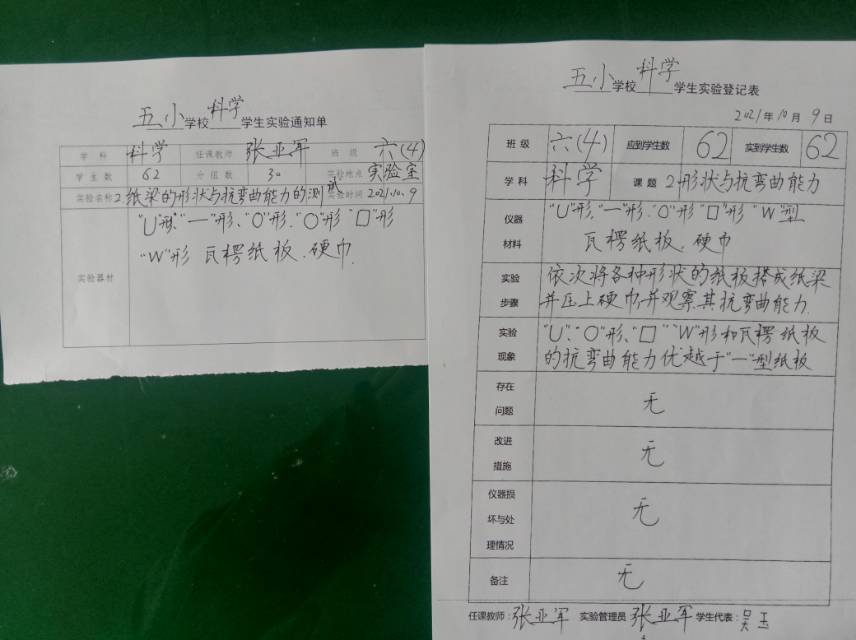 五小学校科学学生实验通知单
学科 科学 任课教师 张亚军 班级 六(4)
学生数 62 分组数 30 实验地点 实验室
实验名称 2.纸梁的形状与抗弯曲能力的测试 实验时间 2021.10.9
实验器材
"U"形"一"形、"O"形、"O"形"口"形
"W"形 瓦楞纸板、硬巾
五小学校科学学生实验登记表
2021年10月9日
班级 六(4) 应到学生数 62 实到学生数 62
学科 科学 课题 2形状与抗弯曲能力
仪器材料
"U"形,"一"形."O"形"口"形 "W"型
瓦楞纸板、硬巾
实验步骤
依次将各种形状的纸板搭成纸梁
并压上硬巾,并观察其抗弯曲能力
实验现象
"U"、"O"形、"口"、"W"形和瓦楞纸板
的抗弯曲能力优越于"一"型纸板
存在问题 无
改进措施 无
仪器损坏与处理情况 无
备注 无
任课教师:张亚军 实验管理员 张亚军 学生代表:吴玉